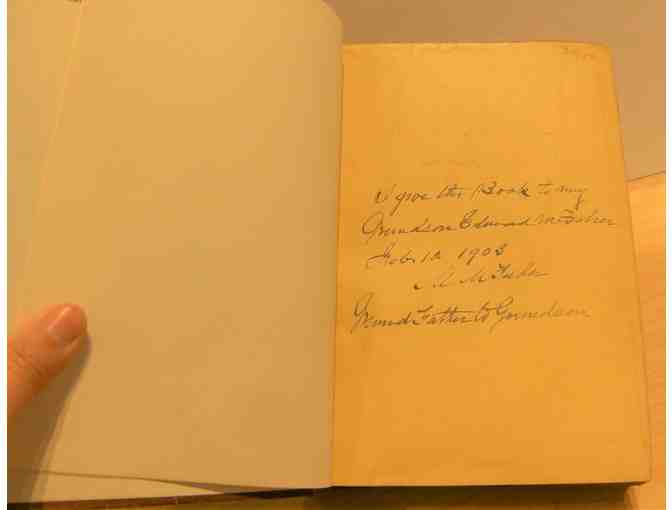 I give this Book to my
Grandson Edward M Fisher
Feb. 12 1903
A M Fisher
Grand Father to Grandson